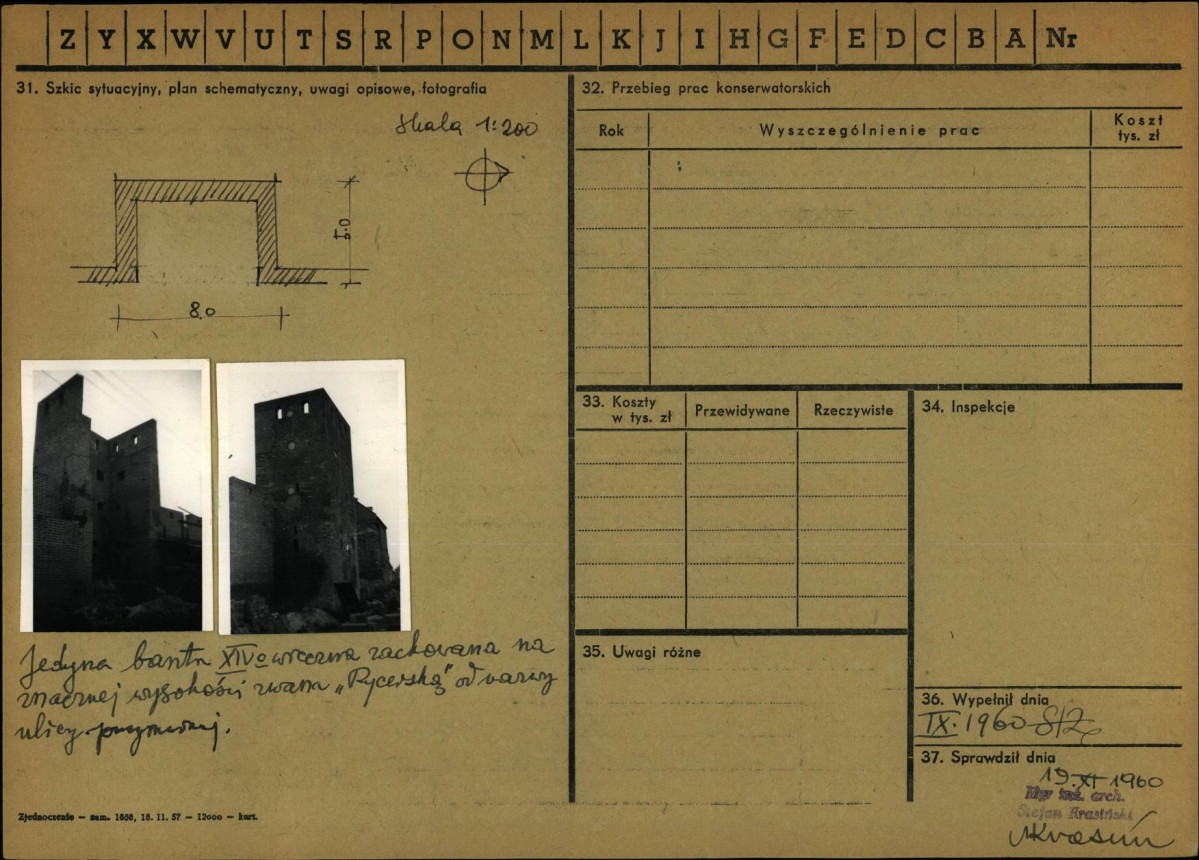 Z Y X W V U T S R P O N M L K J I H G F E D C B A Nr
31. Szkic sytuacyjny, plan schematyczny, uwagi opisowe, fotografia
skala 1:200
5.0
8.0
Jedyna baszta XIV-o wieczna zachowana na
znacznej wysokości zwana „Rycerską" od nazwy
ulicy
32. Przebieg prac konserwatorskich
Rok
Wyszczególnienie prac
Koszt
tys. zł
33. Koszty
w tys. zł
Przewidywane
Rzeczywiste
34. Inspekcje
35. Uwagi różne
36. Wypełnił dnia
IX. 1960
37. Sprawdził dnia
19.XI 1960
Mgr inż. arch.
Stefan Krasiński
Zjednoczenie – zam. 1858, 18. 11. 57 – 12000 – kart.